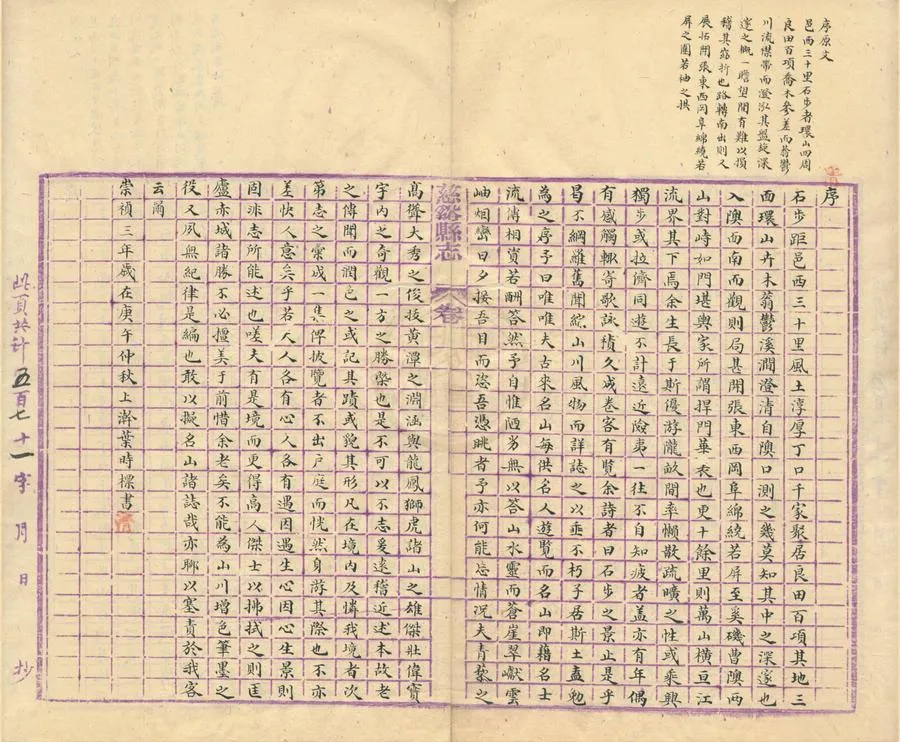 序原文
邑西三十里石步者環山四周
良田百項喬木參差而蓊鬱
川流襟帶而澄泓其盤旋深
邃之概一瞻望間有難以損
稽其窈折也路轉南出則又
展拓開張東西岡阜綿繞若
屏之圍若袖之拱
序
石步距邑西三十里風土淳厚丁口千家聚居良田百項其地三
面環山卉木蓊鬱溪澗澄清自隩口測之幾莫知其中之深邃也
入隩而南而觀則局甚開張東西岡阜綿繞若屏至奚磯曹隩西
山對峙如門堪輿家所謂捍門華表也更十餘里則萬山橫亘江
流界其下焉余生長于斯優游隴畝間率懶散疏曠之性或乘興
獨步或拉儕同遊不計遠近險夷一往不自知疲者盖亦有年偶
有感觸輒寄歌詠積久成卷客有覽余詩者曰石步之景止是乎
曷不網羅舊聞綜山川風物而詳誌之以垂不朽予居斯土盍勉
為之序予曰唯唯夫古來名山每供名人遊覽而名山即藉名士
流傳相資若酬答然予自惟陋劣無以答山水靈而蒼崖翠巘雲
岫烟巒日夕接吾目而恣吾憑眺者予亦何能忘情况夫青嶅之
慈谿縣志
卷
高聳大秀之俊拔黄潭之淵涵與龍鳳獅虎諸山之雄傑壯偉寶
宇內之奇觀一方之勝槩也是不可以不志爰遠稽近述本故老
之傳聞而潤色之或記其蹟或貌其形凡在境內及憐我境者次
第志之彙成一集俾披覽者不出户庭而恍然身游其際也不亦
差快人意矣乎若人人各有心人各有遇因遇生心因心生景則
固非志所能述也嗟夫有是境而更得高人傑士以拂拭之則匡
廬赤城諸勝不必擅美于前惜余老矣不能為山川增色筆墨之
役又夙無紀律是編也敢以擬名山諸誌哉亦聊以塞責於我客
云爾
崇禎三年歲在庚午仲秋上澣葉時標書
此頁共計五百七十一字 月 日 抄